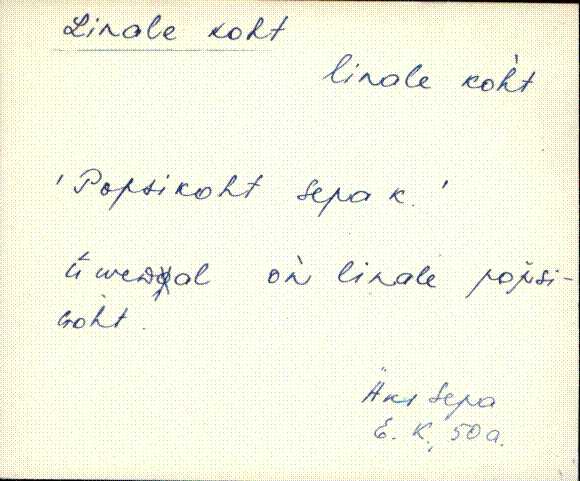 Linale koht
linale koh̀t
'Popsikoht Sepa k.'
on̄ linale pop̆si-
koh̀t.
Äksi Sepa
E. K., 50 a.